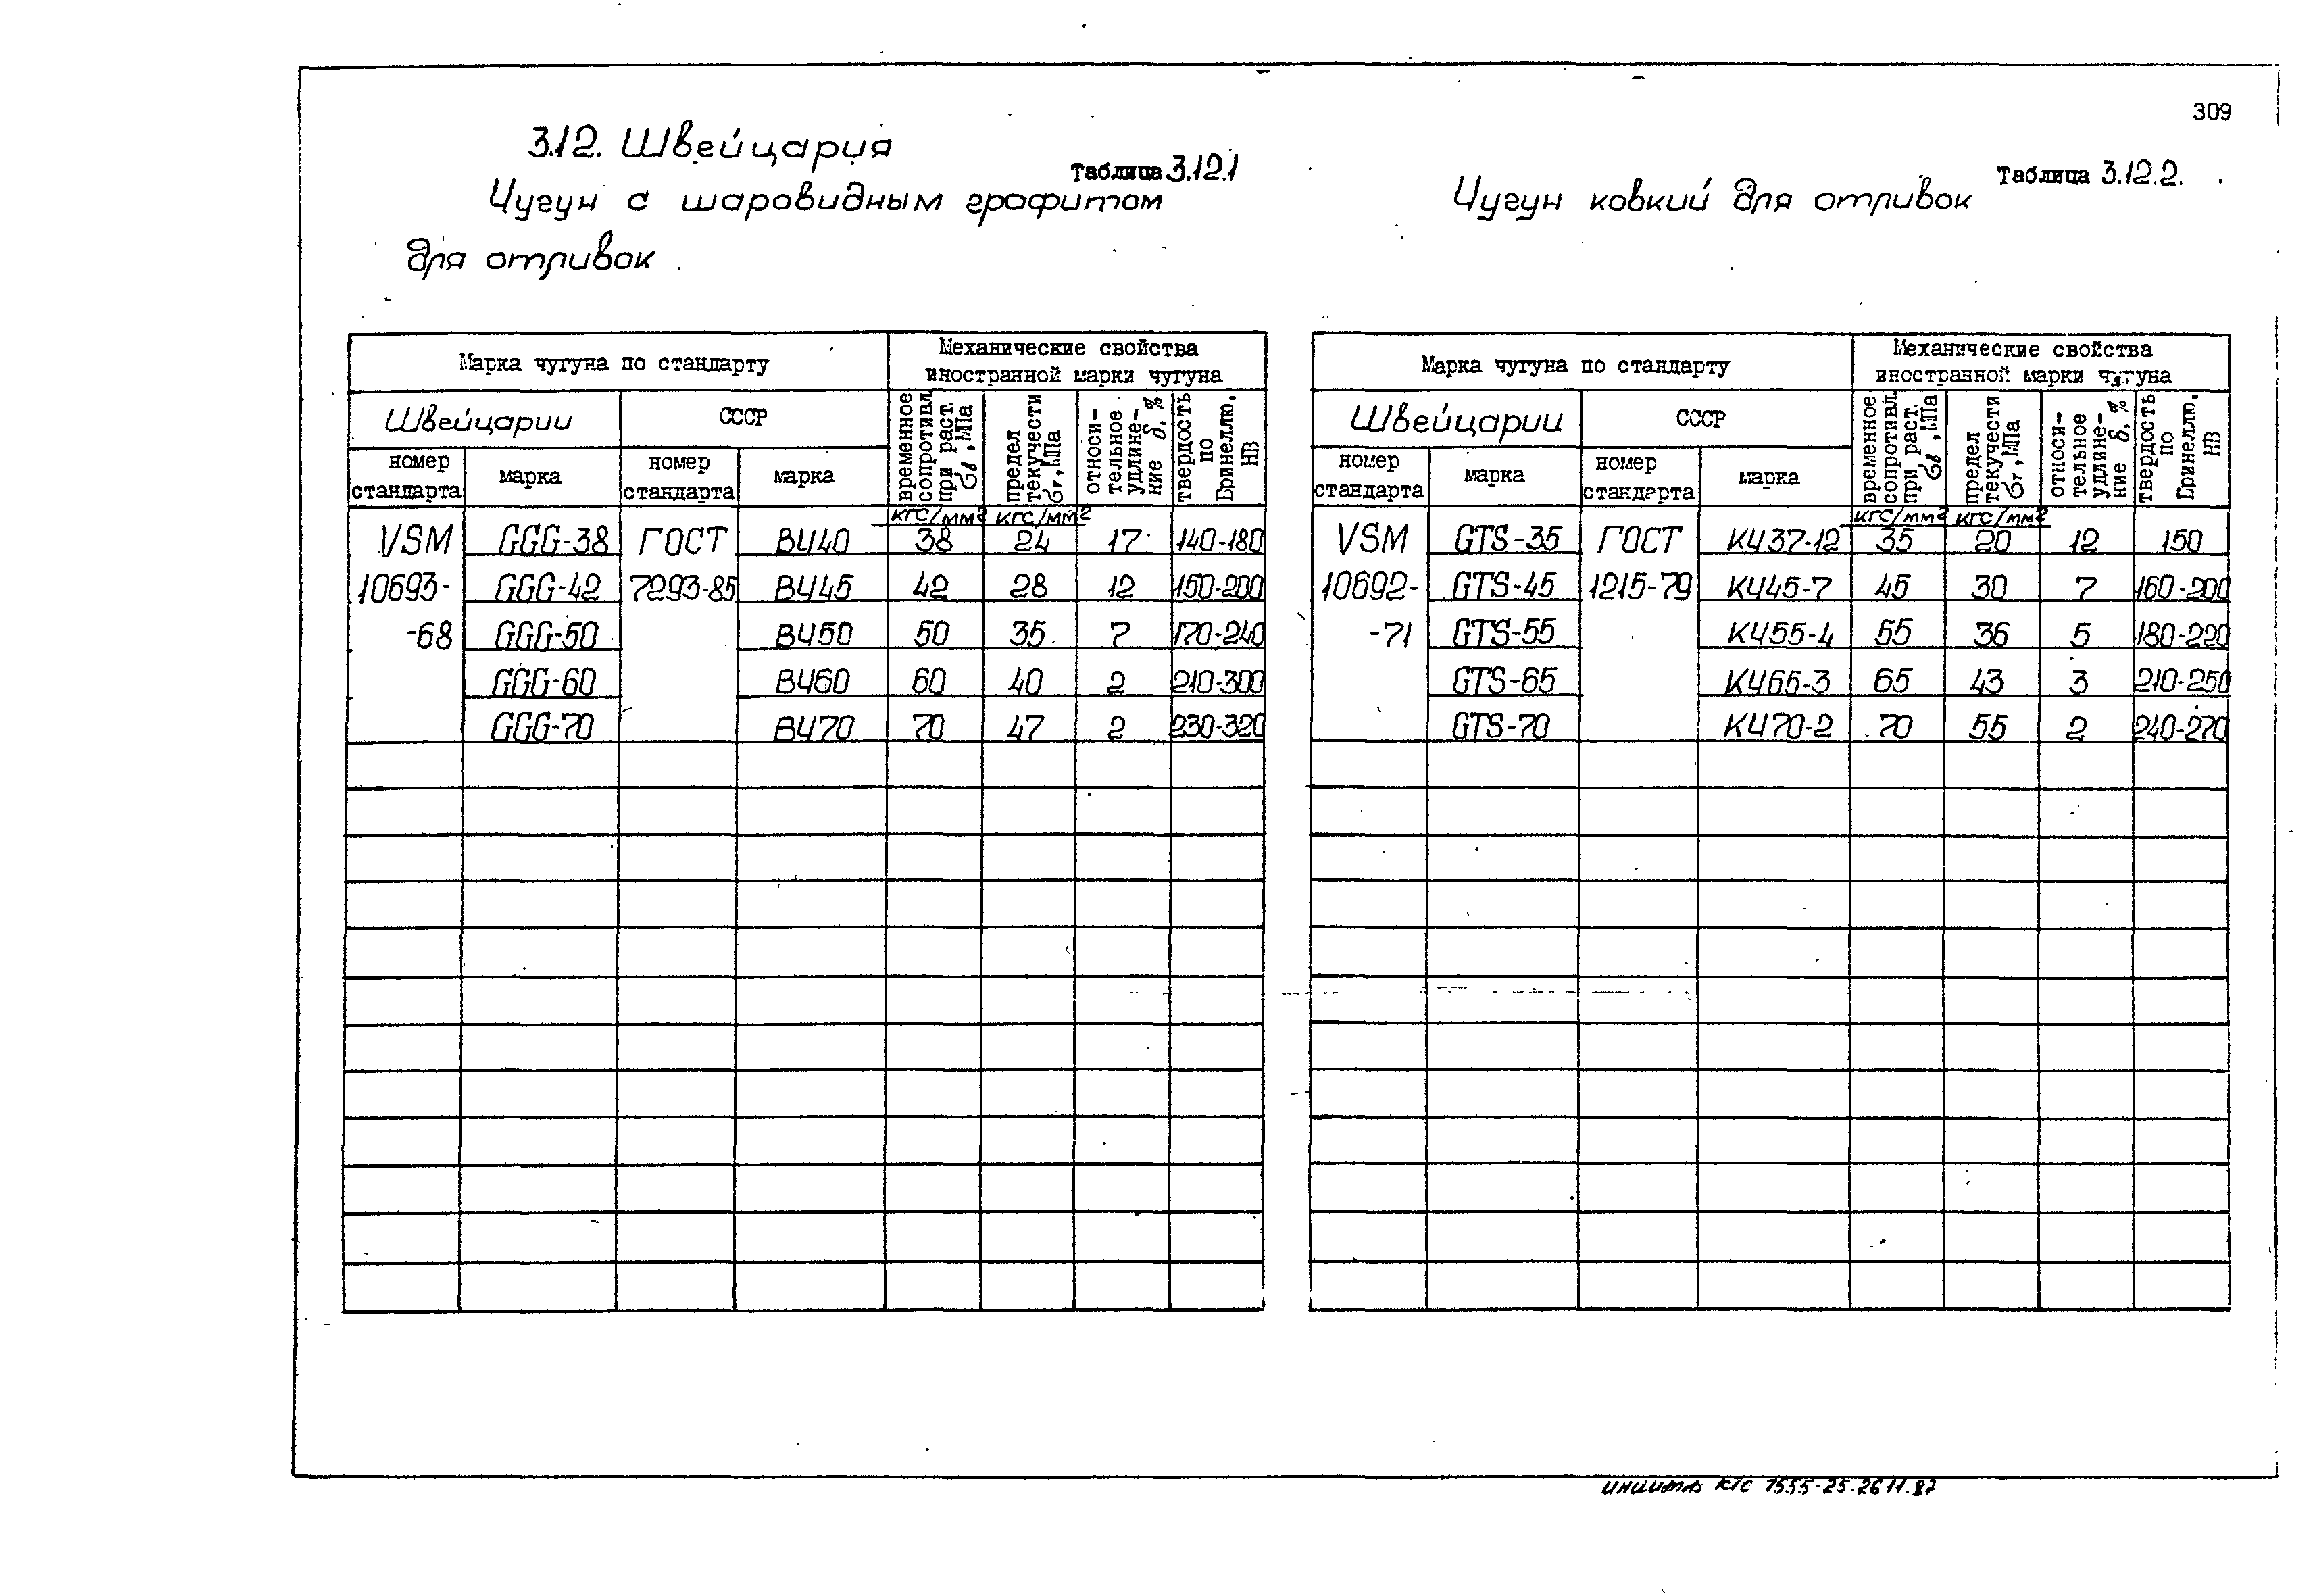 309
3.12. Швейцария
Таблица 3.12.1
Чугун с шаровидным графитом
для отливок
Марка чугуна по стандарту
Механические свойства иностранной марки чугуна
Швейцарии
СССР
временное сопротивл. при раст. σв, МПа
предел текучести σт, МПа
относи-тельное удлине-ние δ, %
твердость по Бринеллю, НВ
номер стандарта
марка
номер стандарта
марка
кгс/мм² кгс/мм²
VSM GGG-38 ГОСТ ВЧ40 38 24 17 140-180
10693- GGG-42 7293-85 ВЧ45 42 28 12 150-200
-68 GGG-50 ВЧ50 50 35 7 170-240
GGG-60 ВЧ60 60 40 2 210-300
GGG-70 ВЧ70 70 47 2 230-320
Таблица 3.12.2.
Чугун ковкий для отливок
Марка чугуна по стандарту
Механические свойства иностранной марки чугуна
Швейцарии
СССР
временное сопротивл. при раст. σв, МПа
предел текучести σт, МПа
относи-тельное удлине-ние δ, %
твердость по Бринеллю, НВ
номер стандарта
марка
номер стандарта
марка
кгс/мм² кгс/мм²
VSM GTS-35 ГОСТ КЧ37-12 35 20 12 150
10692- GTS-45 1215-79 КЧ45-7 45 30 7 160-200
-71 GTS-55 КЧ55-4 55 36 5 180-220
GTS-65 КЧ65-3 65 43 3 210-250
GTS-70 КЧ70-2 70 55 2 240-270
7555-25.26 11.87